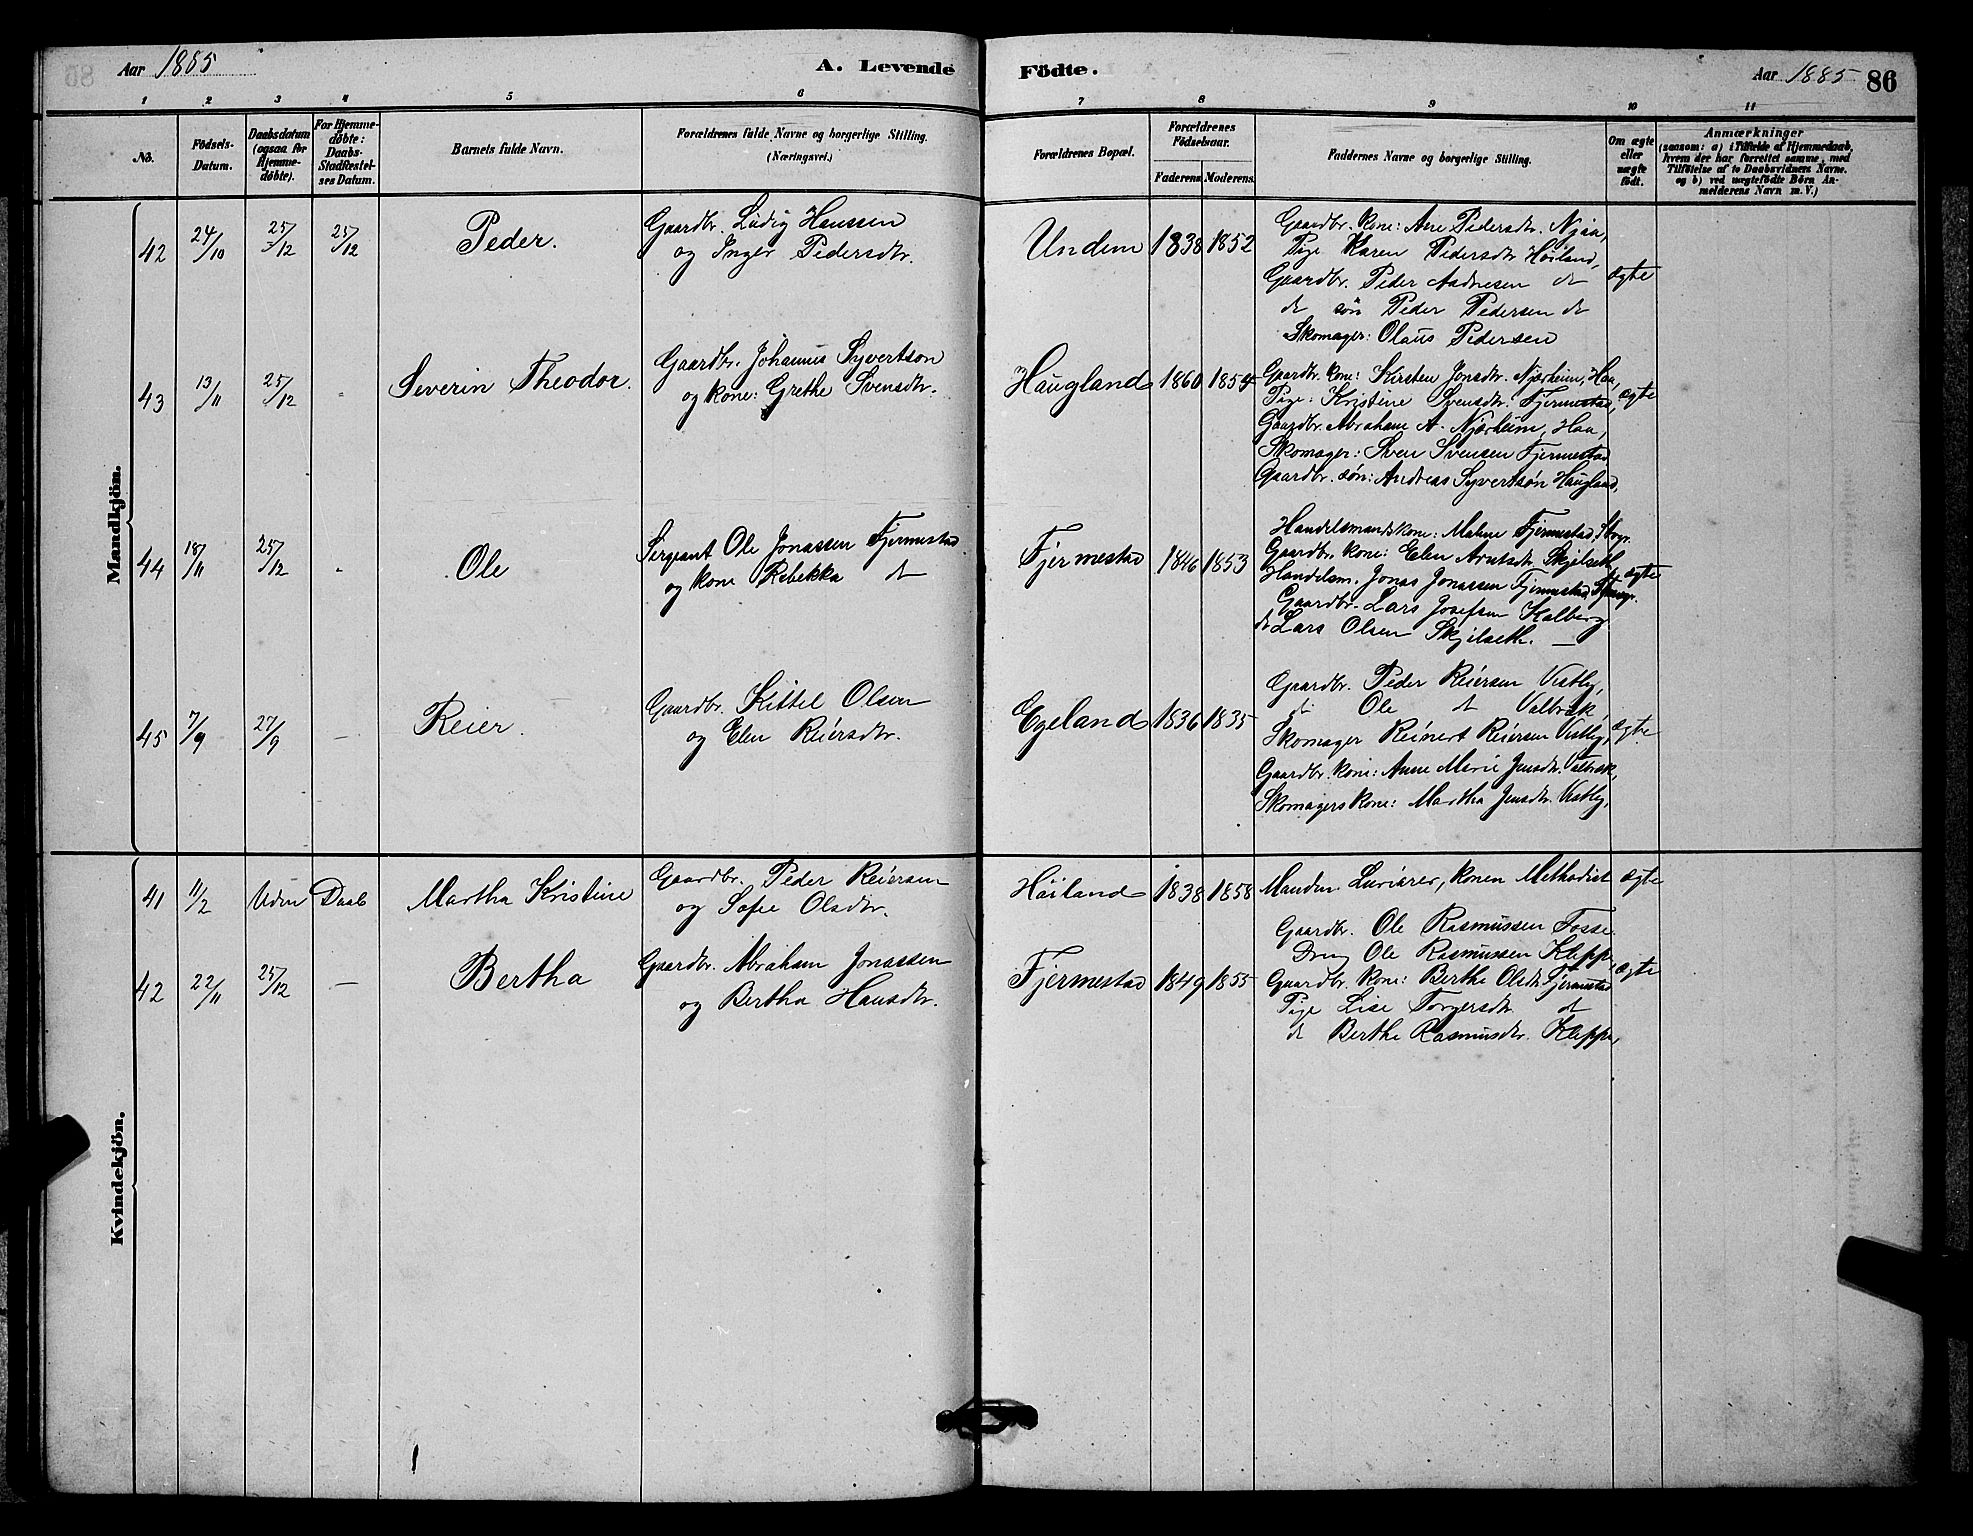 Aar 1885
A. Levende Födte.
Aar 1885 86
1 2 3 4 5 6 7 8 9 10 11
No.
Födsels-Datum.
Daabsdatum (ogsaa for Hjemme-døbte).
For Hjemme-døbte: Daabs-Stadfæstel-ses Datum.
Barnets fulde Navn.
Forældrenes fulde Navne og borgerlige Stilling.
(Næringsvei.)
Forældrenes Bopæl.
Forældrenes Fødselsaar.
Faderens Moderens
Faddernes Navne og borgerlige Stilling.
Om ægte eller uægte født.
Anmærkninger
(saasom: a) i Tilfælde af Hjemmedaab,
hvem der har forrettet samme, med
Tilføielse af to Daabsvidners Navne.
og b) ved uægtefødte Börn An-
melderens Navn m. V.)
Mandkjön.
42 24/10 25/12 25/12 Peder. Gaardbr. Ludig Hanssen
og Inger Pedersdtr.
Undem 1838 1852
Gaardbr. kone: Ane Pedersdtr. Njaa,
Pige Karen Pedersdtr Höiland,
Gaardbr. Peder Aadnesen dt
dt søn Peder Pedersen dt
Skomager: Olaus Pedersen
ægte
43 13/11 25/12 - Severin Theodor. Gaardbr. Johannes Syvertson
og kone: Grethe Svensdtr.
Haugland 1860 1854
Gaardbr. kone: Kirsten Jonsdtr. Njærheim, Haa,
Pige: Kristine Svensdtr. Fjermestad,
Gaardbr. Abraham A. Njærheim, Haa,
Skomager: Sven Svensen Fjermestad
Gaardbr. søn: Andreas Syvertsön Haugland,
ægte
44 18/11 25/12 - Ole Sergeant Ole Jonassen Fjermestad
og kone Rebekka dt
Fjermestad 1846 1853
Handelsmands kone: Malene Fjermestad,
Gaardbr. kone: Elen Arntsdtr. Skjelseth,
Handelsm. Jonas Jonassen Fjermestad,
Gaardbr. Lars Josefsen Kalberg
dt Lars Olsen Skjelseth. —
ægte
45 7/9 27/9 — Reier. Gaardbr. Kittel Olsen
og Elen Reiersdtr.
Egeland 1836 1835
Gaardbr. Peder Reiersen Vestly,
dt Ole dt Valbræk,
Skomager Reinert Reiersen Vestly,
Gaardbr. kone: Anne Marie Jensdtr. Valbræk,
Skomagers kone: Martha Jensdtr. Vestly,
ægte
Kvindekjön.
41 11/2 Uden Daab Martha Kristine Gaardbr. Peder Reiersen
og Sofie Olsdtr.
Höiland 1838 1858 Manden konen Methodist ægte
42 22/11 25/12 — Bertha Gaardbr. Abraham Jonassen
og Bertha Hansdtr.
Fjermestad 1849 1855
Gaardbr. Ole Rasmussen Fosse.
Dreng Ole Rasmussen Kleppe,
Gaardbr. kone: Berthe Olsdtr Fjermestad
Pige Lise Torgersdtr dt
dt Berthe Rasmusdtr. Kleppe,
ægte